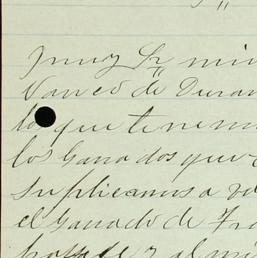 Muy Sr min
Vanco de Duran
lo que tenem
los Ganados que
suplicamos a vd
el Ganado de Fra